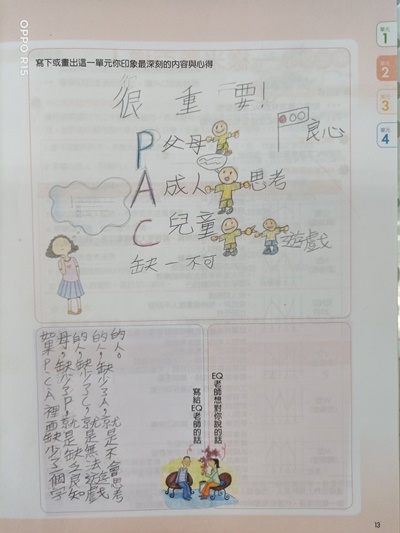 OPPO R15
單元 1
單元 2
單元 3
單元 4
寫下或畫出這一單元你印象最深刻的內容與心得
很重要!
良心
P 父母
A 成人 思考
C 兒童 遊戲
缺一不可
如果PCA裡面缺少了個字
母,缺少了P,就是缺乏良知
的人,缺少了C,就是無法遊戲
的人,缺少了A,就是不會思考
的人。
EQ老師想對你說的話
寫給EQ老師的話
13